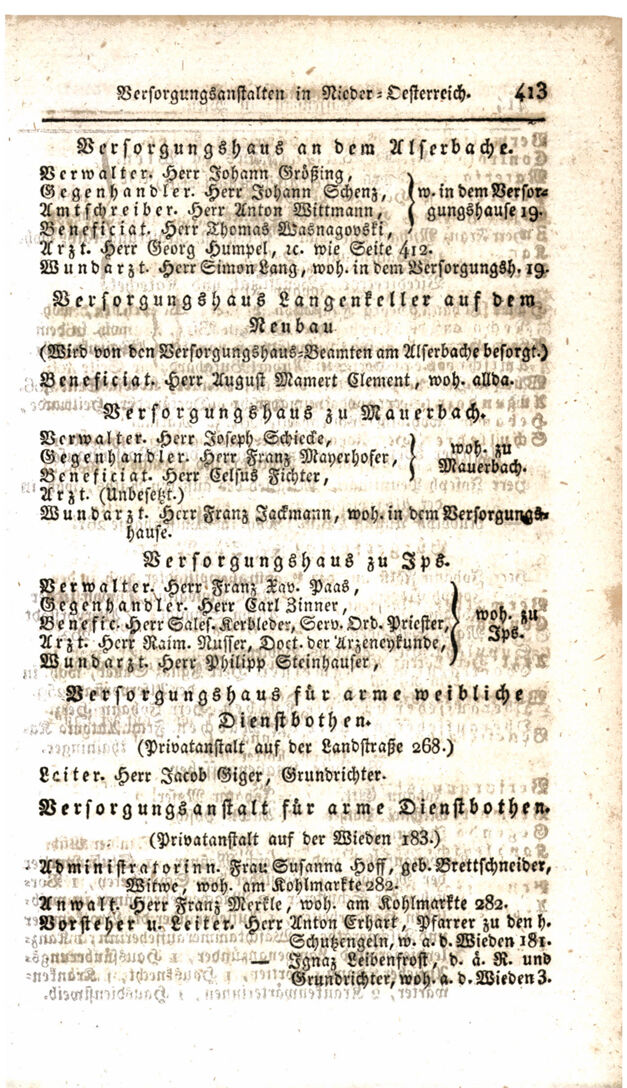 Versorgungsanstalten in Nieder-Oesterreich. 413
Versorgungshaus an dem Alserbache.
Verwalter. Herr Johann Größing,
Gegenhandler. Herr Johann Schenz,
Amtschreiber. Herr Anton Wittmann,
Beneficiat. Herr Thomas Wasnagovski,
w. in dem Versor-
gungshause 19.
Arzt. Herr Georg Humpel, ꝛc. wie Seite 412.
Wundarzt. Herr Simon Lang, woh. in dem Versorgungsh. 19.
Versorgungshaus Langenkeller auf dem
Neubau
(Wird von den Versorgungshaus-Beamten am Alserbache besorgt.)
Beneficiat. Herr August Mamert Clement, woh. allda.
Versorgungshaus zu Mauerbach.
Verwalter. Herr Joseph Schiecke,
Gegenhandler. Herr Franz Mayerhofer,
Beneficiat. Herr Celsus Fichter,
woh. zu
Mauerbach.
Arzt. (Unbesetzt.)
Wundarzt. Herr Franz Jackmann, woh. in dem Versorgungs-
hause.
Versorgungshaus zu Ips.
Verwalter. Herr Franz Xav. Paas,
Gegenhandler. Herr Carl Zinner,
Benefic. Herr Sales. Kerbleder, Serv. Ord. Priester,
Arzt. Herr Raim. Nusser, Doct. der Arzeneykunde,
Wundarzt. Herr Philipp Steinhauser,
woh. zu
Ips.
Versorgungshaus für arme weibliche
Dienstbothen.
(Privatanstalt auf der Landstraße 268.)
Leiter. Herr Jacob Giger, Grundrichter.
Versorgungsanstalt für arme Dienstbothen.
(Privatanstalt auf der Wieden 183.)
Administratorinn. Frau Susanna Hoff, geb. Brettschneider,
Witwe, woh. am Kohlmarkte 282.
Anwalt. Herr Franz Merkle, woh. am Kohlmarkte 282.
Vorsteher u. Leiter. Herr Anton Erhart, Pfarrer zu den h.
Schutzengeln, w. a. d. Wieden 181.
— Ignaz Leibenfrost, d. ä. R. und
Grundrichter, woh. a. d. Wieden 3.